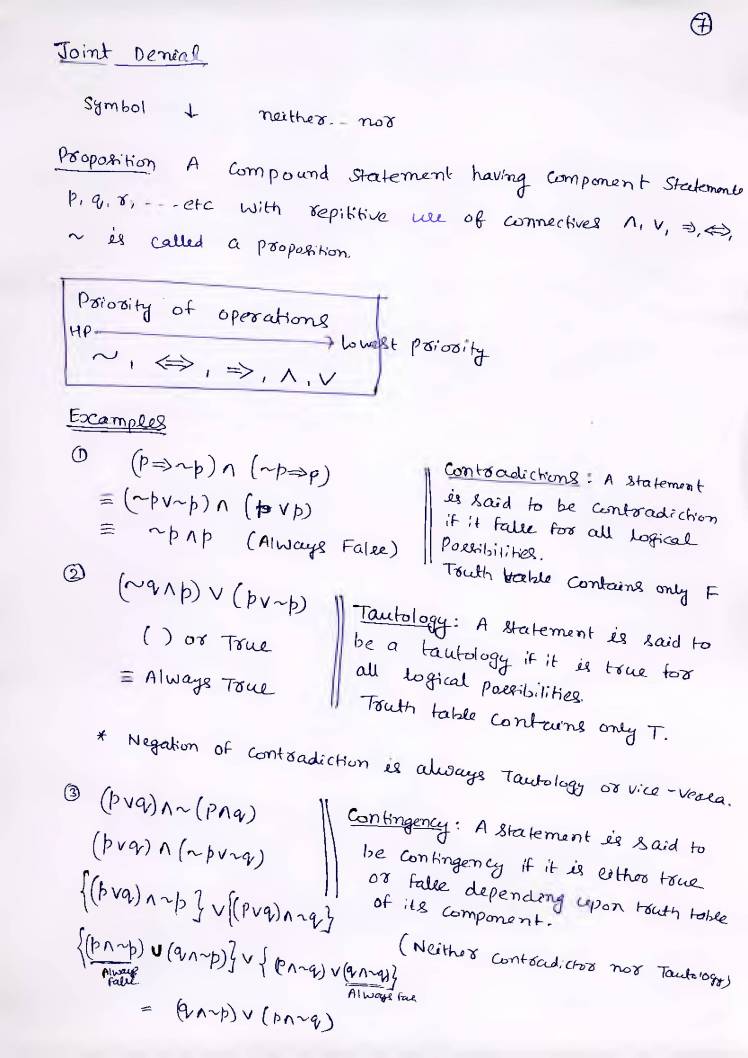 7
Joint Denial
Symbol ↓ neither... nor
Proposition A compound statement having component statements
p, q, r, ---etc with repititive use of connectives ∧, ∨, ⇒, ⇔,
~ is called a proposition.
Priority of operations
HP → lowest priority
~, ⇔, ⇒, ∧, ∨
Examples
① (p⇒~p) ∧ (~p⇒p)
≡ (~p∨~p) ∧ (p∨p)
≡ ~p∧p (Always False)
Contradictions: A statement
is said to be contradiction
if it false for all logical
Possibilities.
Truth table contains only F
② (~q∧p) ∨ (p∨~p)
( ) or True
≡ Always True
Tautology: A statement is said to
be a tautology if it is true for
all logical possibilities.
Truth table contains only T.
* Negation of contradiction is always Tautology or vice-versa.
③ (p∨q)∧~(p∧q)
(p∨q) ∧ (~p∨~q)
{(p∨q)∧~p} ∨ {(p∨q)∧~q}
{(p∧~p) ∪ (q∧~p)} ∨ {(p∧~q) ∨ (q∧~q)}
Always False
Always Fal
= (q∧~p) ∨ (p∧~q)
Contingency: A statement is said to
be contingency if it is either true
or false depending upon truth table
of its component.
(Neither contradictor nor Tautology)